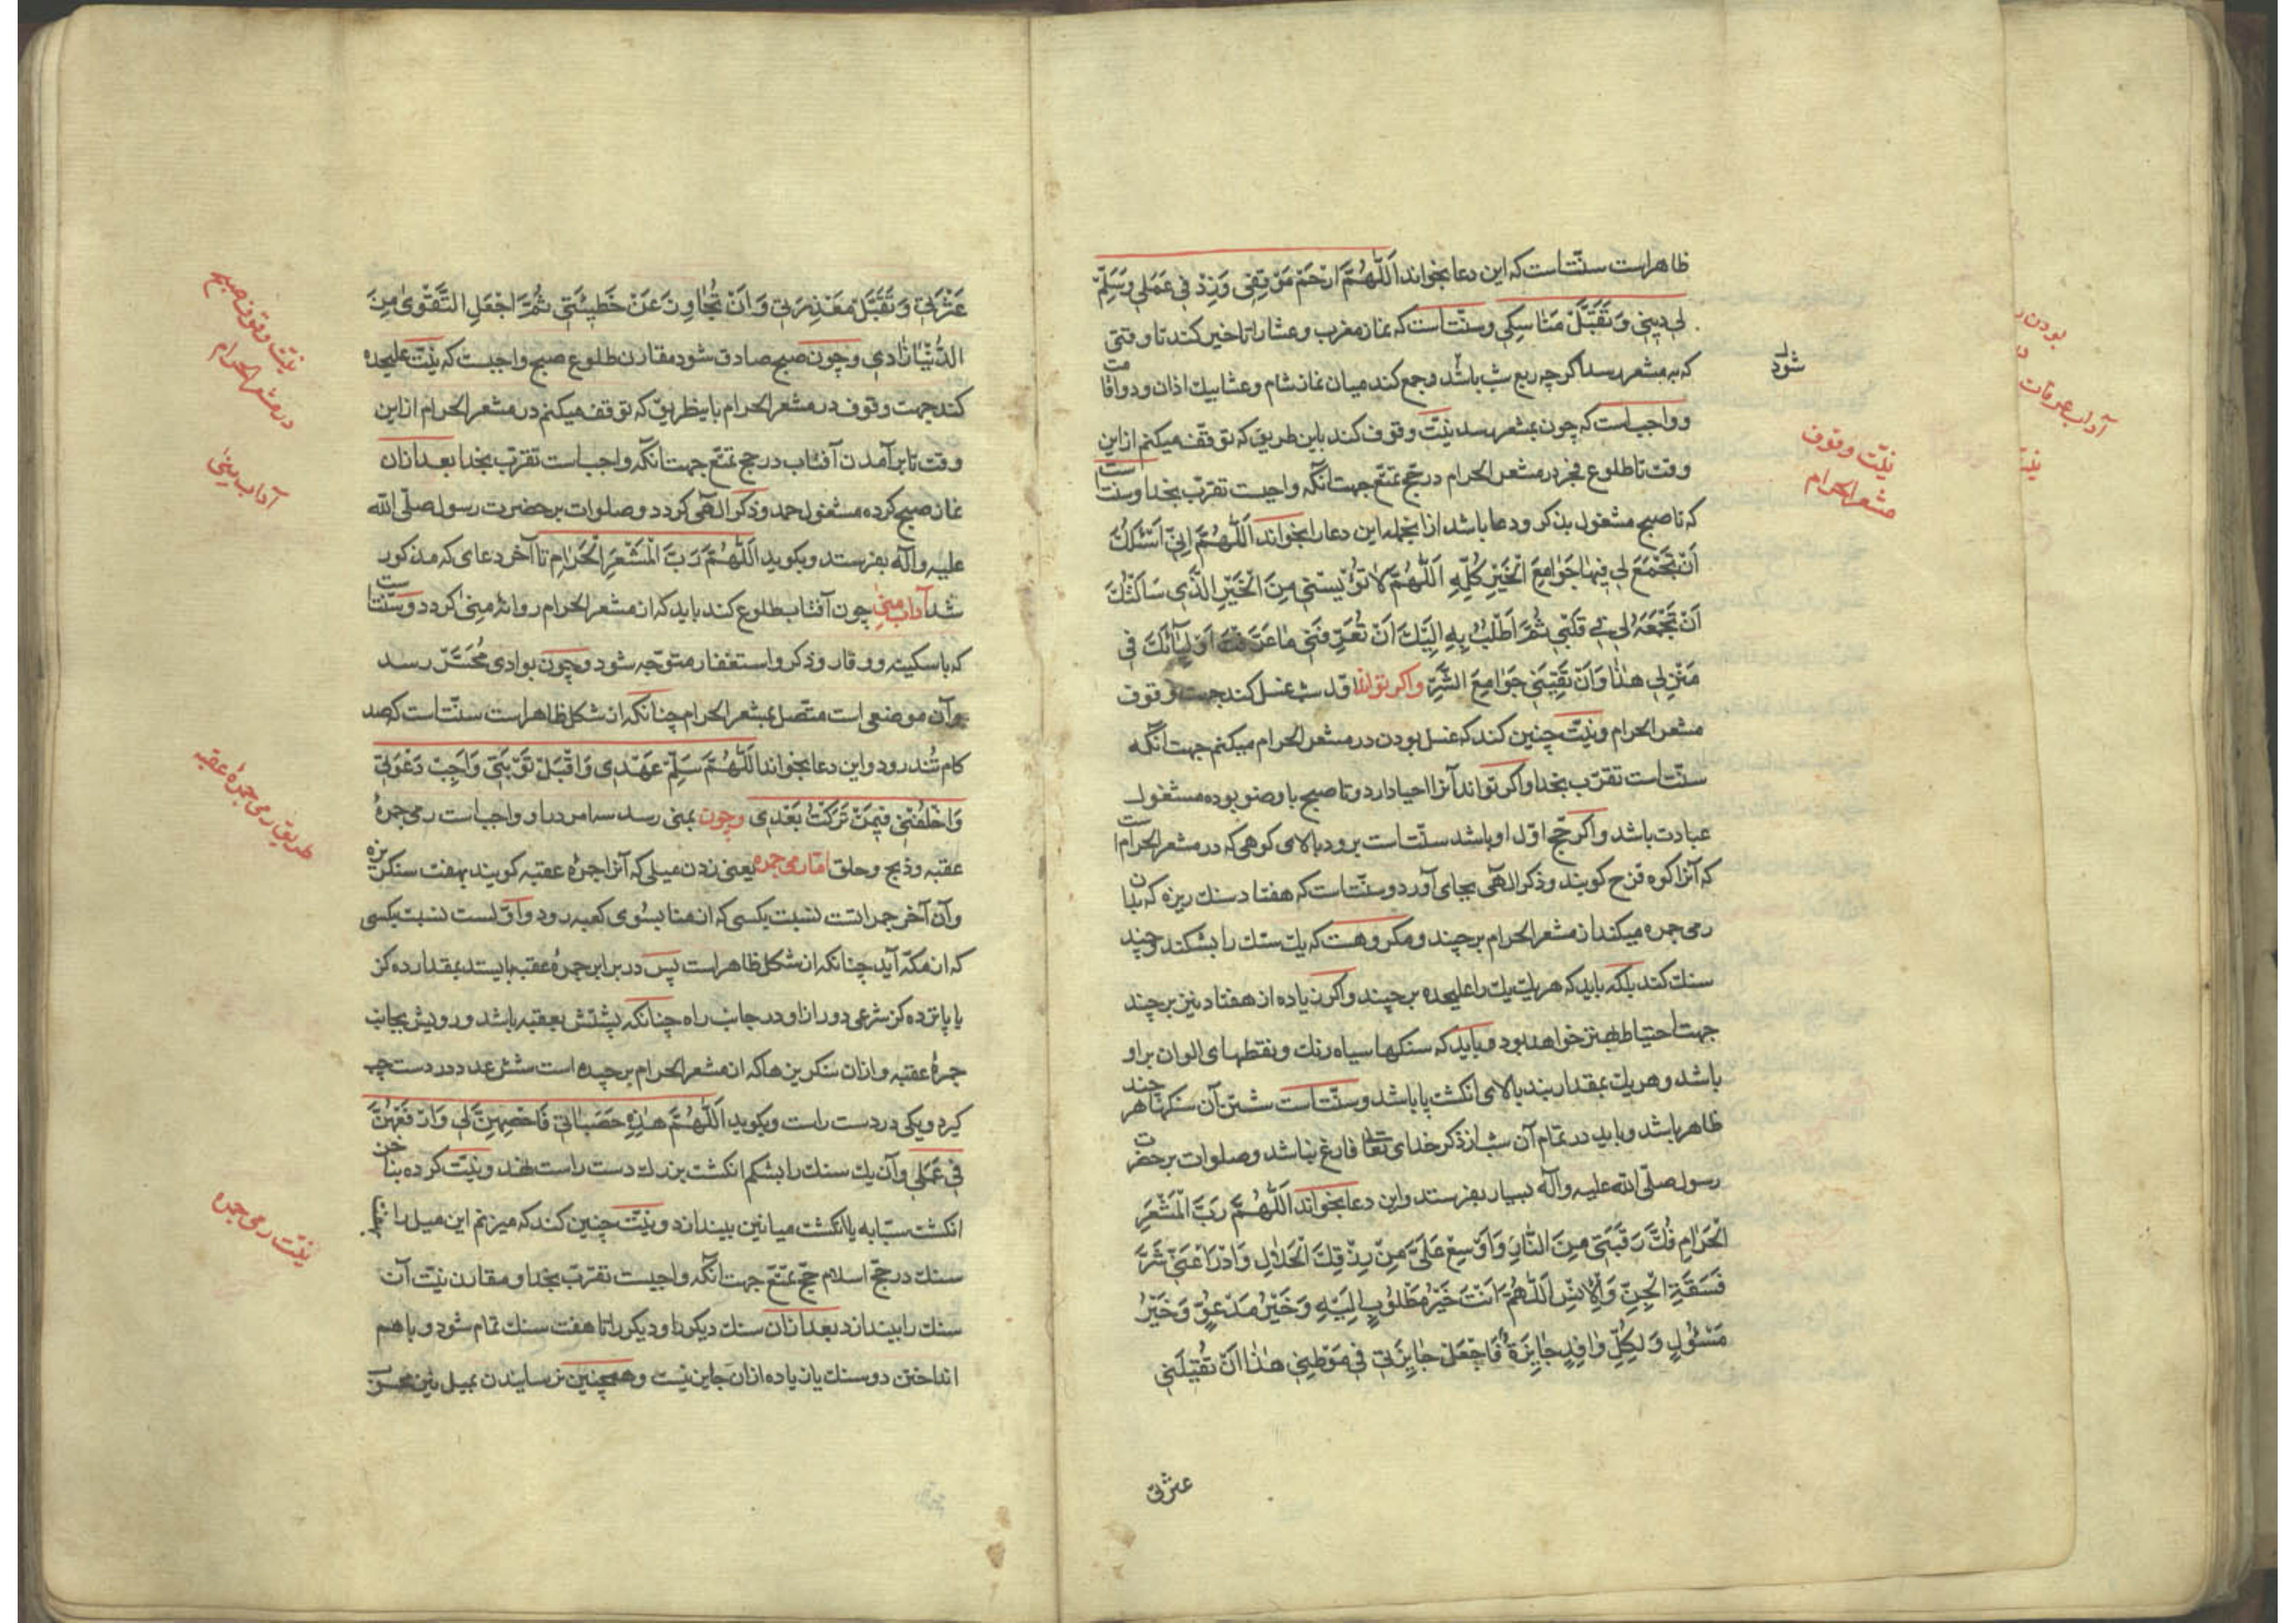 ظاهر است سنّت است که این دعا بخواند اَللّٰهُمَّ ارْحَمْ مَوْقِفِی وَزِدْ فِی عَمَلِی وَسَلِّمْ
لِی دِینِی وَتَقَبَّلْ مَنَاسِکِی وسنّت است که نماز مغرب و عشا را تاخیر کند تا وقتی
که به مشعر رسد اگر چه ربع شب باشد و جمع کند میان نماز شام و عشا بیک اذان و دو اقامت
شود
و واجب است که چون بمشعر رسد نیّت وقوف کند باین طریق که توقف میکنم از این
نیّت وقوف
مشعر الحرام
وقت تا طلوع فجر در مشعر الحرام در حجّ تمتّع جهت آنکه واجبست تقرّب بخدا و سنت است
که تا صبح مشغول بذکر و دعا باشد از انجمله این دعا را بخواند اَللّٰهُمَّ اِنِّی اَسْئَلُکَ
اَنْ تَجْمَعَ لِی فِیهَا جَوَامِعَ الْخَیْرِ کُلِّهِ اَللّٰهُمَّ لَا تُؤْیِسْنِی مِنَ الْخَیْرِ الَّذِی سَاَلْتُکَ
اَنْ تَجْمَعَهُ لِی فِی قَلْبِی ثُمَّ اَطْلُبُ بِهِ اِلَیْکَ اَنْ تُعَرِّفَنِی مَا عَرَّفْتَ اَوْلِیَائَکَ فِی
مَنْزِلِی هٰذَا وَاَنْ تَقِیَنِی جَوَامِعَ الشَّرِّ واکر تواند اول شب غسل کند جهت وقوف
مشعر الحرام و نیّت چنین کند که غسل بودن در مشعر الحرام میکنم جهت آنکه
سنّت است تقرّب بخدا و اکر تواند آنرا احیا دارد و تا صبح با وضو بوده مشغول
عبادت باشد و اکر حجّ اوّل او باشد سنّت است برود ببالای کوهی که در مشعر الحرام است
که آنرا کوه قزح کویند و ذکر الهی بجای آورد و سنّت است که هفتاد سنک ریزه که بآن
رمی جمره میکند از مشعر الحرام برچیند و مکروهست که یک سنک را بشکند و چند
سنک کند بلکه باید که هر یک یک را علیحده برچیند و اکر زیاده از هفتاد نیز برچیند
جهت احتیاط بهتر خواهد بود و باید که سنکها سیاه رنک و نقطهای الوان بر او
باشد و هر یک بمقدار بند بالای انکشت پا باشد و سنّت است شستن آن سنکها هر چند
ظاهر باشد و باید در تمام آن شب از ذکر خدای تعالی فارغ نباشد و صلوات بر حضرت
رسول صلّی الله علیه و آله بسیار بفرستد و این دعا بخواند اَللّٰهُمَّ رَبَّ الْمَشْعَرِ
الْحَرَامِ فُکَّ رَقَبَتِی مِنَ النَّارِ وَاَوْسِعْ عَلَیَّ مِنْ رِزْقِکَ الْحَلَالِ وَادْرَأْ عَنِّی شَرَّ
فَسَقَةِ الْجِنِّ وَالْاِنْسِ اَللّٰهُمَّ اَنْتَ خَیْرُ مَطْلُوبٍ اِلَیْهِ وَخَیْرُ مَدْعُوٍّ وَخَیْرُ
مَسْئُولٍ وَلِکُلِّ وَافِدٍ جَایِزَةٌ فَاجْعَلْ جَایِزَتِی فِی مَوْطِنِی هٰذَا اَنْ تُقِیلَنِی
عثرتی
بودن
آداب عرفات
عَثْرَتِی وَتَقَبَّلَ مَعْذِرَتِی وَاَنْ تُجَاوِزَ عَنْ خَطِیئَتِی ثُمَّ اجْعَلِ التَّقْوٰی مِنَ
نیّت وقوف صبح
در مشعر الحرام
الدُّنْیَا زَادِی وچون صبح صادق شود مقارن طلوع صبح واجبست که نیّت علیحده
کند جهت وقوف در مشعر الحرام باینطریق که توقف میکنم در مشعر الحرام از این
وقت تا برآمدن آفتاب در حج تمتّع جهت آنکه واجب است تقرّب بخدا بعد از آن
آداب منی
نماز صبح کرده مشغول حمد و ذکر الهی کردد و صلوات بر حضرت رسول صلّی الله
علیه و آله بفرستد و بکوید اَللّٰهُمَّ رَبَّ الْمَشْعَرِ الْحَرَامِ تا آخر دعای که مذکور
شد آداب منی چون آفتاب طلوع کند باید که از مشعر الحرام روانهٔ منی کردد و سنّت است
که با سکینه و وقار و ذکر و استغفار متوّجه شود و چون بوادی مُحَسَّر رسد
و آن موضعی است متّصل بمشعر الحرام چنانکه از شکل ظاهر است سنّت است که صد
کام تُند رود و این دعا بخواند اَللّٰهُمَّ سَلِّمْ عَهْدِی وَاقْبَلْ تَوْبَتِی وَاَجِبْ دَعْوَتِی
طریق رمی جمرهٔ عقبه
وَاخْلُفْنِی فِیمَنْ تَرَکْتُ بَعْدِی وچون بمنی رسد سه امر در او واجب است رمی جمرهٔ
عقبه و ذبح و حلق امّا رمی جمره یعنی زدن میلی که آنرا جمرهٔ عقبه کویند بهفت سنکریزه
و آن آخر جمراتست نسبت بکسی که از منا بسُوی کعبه رود و اوّلست نسبت بکسی
که از مکّه آید چنانکه از شکل ظاهر است پس در برابر جمرهٔ عقبه بایستد بمقدار ده کز
یا پانزده کز شرعی دور از او در جانب راه چنانکه پشتش بعقبه باشد و رویش بجانب
جمرهٔ عقبه و از آن سنکریزها که از مشعر الحرام برچیده است شش عدد در دست چپ
کیرد و یکی در دست راست و بکوید اَللّٰهُمَّ هٰذِهِ حَصَیَاتِی فَاحْصِهِنَّ لِی وَارْفَعْهُنَّ
فِی عَمَلِی و آن یک سنک را بشکم انکشت بزرک دست راست نهد و نیّت کرده بناخن
انکشت سبّابه یا انکشت میانین بیندازد و نیّت چنین کند که میزنم این میل را
نیّت رمی جمره
سنک در حجّ اسلام حجّ تمتّع جهت آنکه واجبست تقرّب بخدا و مقارن نیّت آن
سنک را بیندازد بعد از آن سنک دیکر را و دیکر را تا هفت سنک تمام شود و با هم
انداختن دو سنک یا زیاده از آن جایز نیست و همچنین رسانیدن بمیل